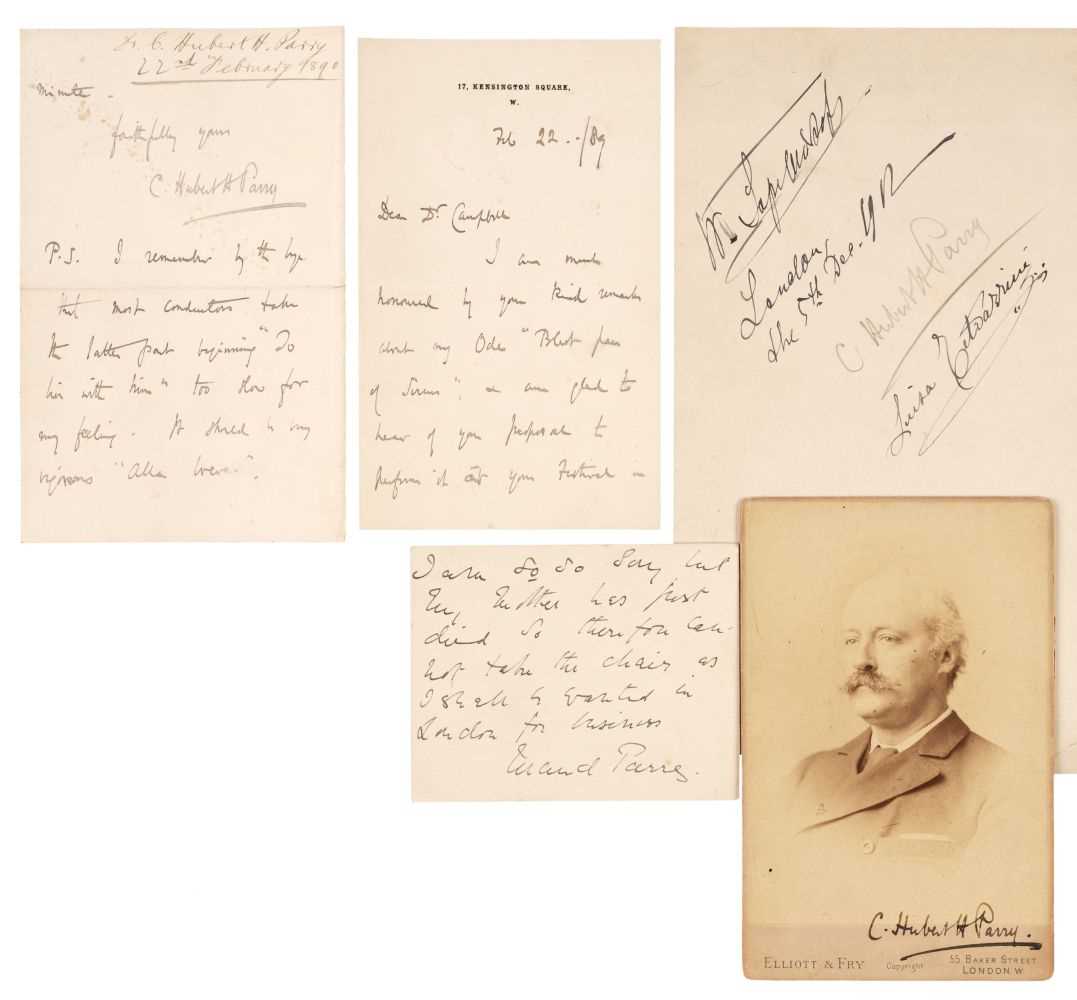 Dr. C. Hubert H. Parry
22nd February 1890
minute.
faithfully yours
C. Hubert H Parry
P.S. I remember by the bye
that most conductors take
the latter part beginning "To
live with him" too slow for
my feeling. It should be very
vigorous "Alla breve".
17, KENSINGTON SQUARE,
W.
Feb 22../89
Dear Dr Campbell
I am much
honoured by your kind remarks
about my Ode "Blest pair
of Sirens", & am glad to
hear of your proposal to
perform it at your Festival in
London,
the 5th Dec. 1912
C Hubert H Parry
Luisa Tetrazzini
I am so so sorry but
my mother has just
died so therefore can-
not take the chair as
I shall be wanted in
London for business
Maud Parry.
C. Hubert H Parry.
ELLIOTT & FRY Copyright 55, BAKER STREET
LONDON. W.